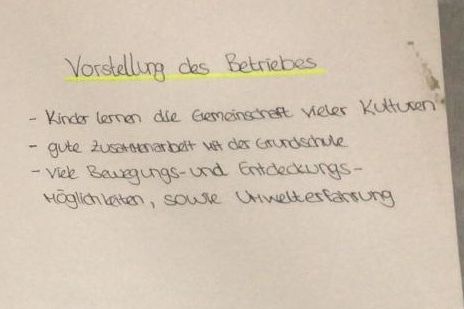 Vorstellung des Betriebes
- Kinder lernen die Gemeinschaft vieler Kulturen
- gute Zusammenarbeit mit der Grundschule
- viele Bewegungs- und Entdeckungs-
möglichkeiten, sowie Umwelterfahrung